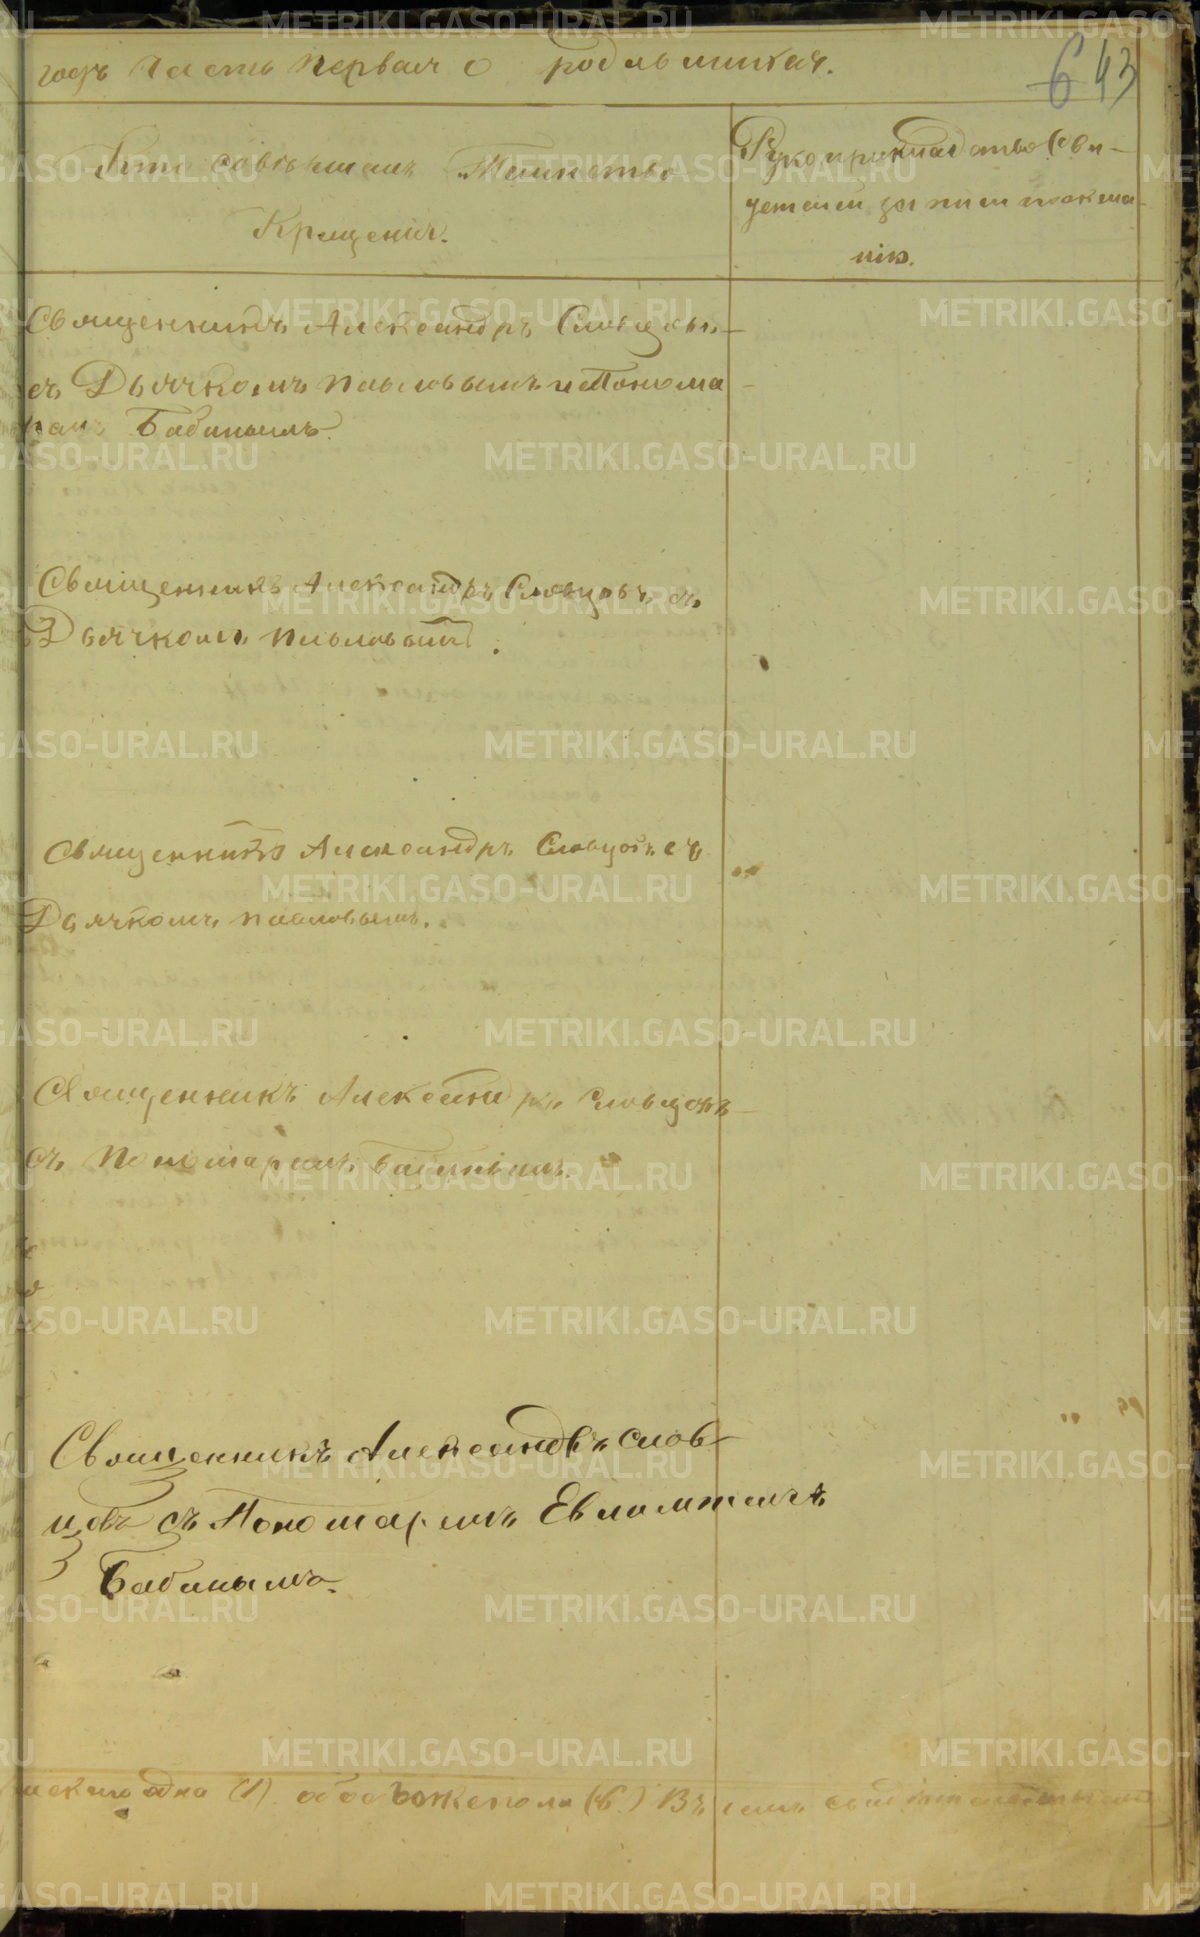 годъ Часть первая о родившихся.
643
Кто совершалъ Таинство
Крещенія.
Рукоприкладство сви-
детелей записи по жела-
нію.
Священникъ Александръ Словцовъ
съ Дьячкомъ Павловымъ и Понома
ремъ Бабинымъ.
Священникъ Александръ Словцовъ съ
Дьячкомъ Павловымъ.
Священникъ Александръ Словцовъ съ
Дьячкомъ Павловымъ.
Священникъ Александръ Словцовъ
съ Пономаремъ Бабинымъ.
Священникъ Александръ Слов-
цовъ съ Пономаремъ Евлампіемъ
Бабинымъ.
одна (1) обоего пола (6.) Въ чемъ
METRIKI.GASO-URAL.RU